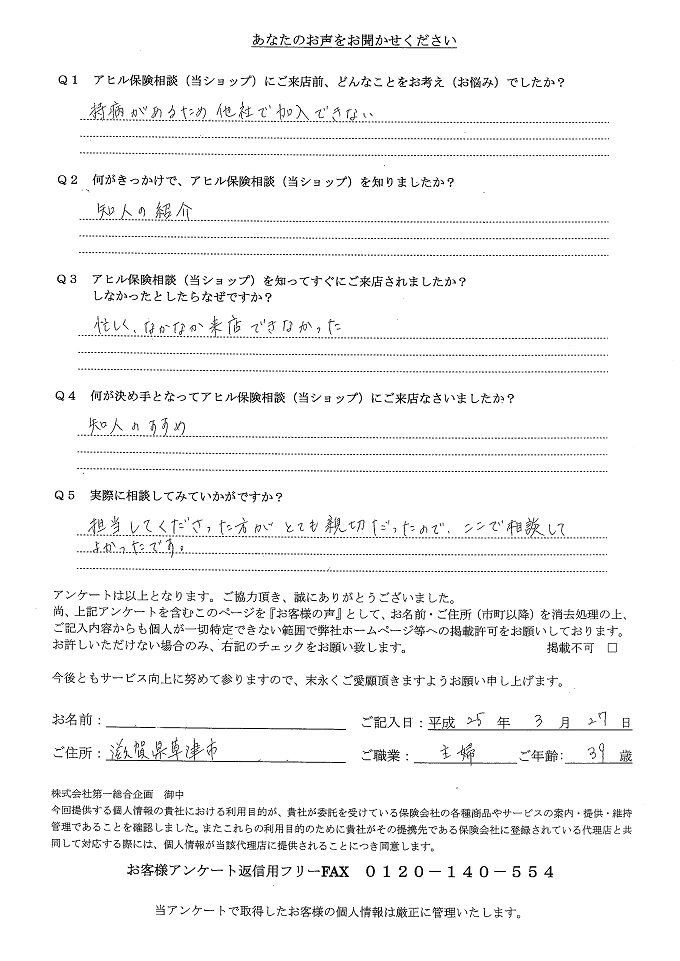 あなたのお声をお聞かせください
Q1 アヒル保険相談（当ショップ）にご来店前、どんなことをお考え（お悩み）でしたか？
持病があるため他社で加入できない
Q2 何がきっかけで、アヒル保険相談（当ショップ）を知りましたか？
知人の紹介
Q3 アヒル保険相談（当ショップ）を知ってすぐにご来店されましたか？
しなかったとしたらなぜですか？
忙しく、なかなか来店できなかった
Q4 何が決め手となってアヒル保険相談（当ショップ）にご来店なさいましたか？
知人のすすめ
Q5 実際に相談してみていかがですか？
担当してくださった方がとても親切だったので、ここで相談して
よかったです。
アンケートは以上となります。ご協力頂き、誠にありがとうございました。
尚、上記アンケートを含むこのページを『お客様の声』として、お名前・ご住所（市町以降）を消去処理の上、
ご記入内容からも個人が一切特定できない範囲で弊社ホームページ等への掲載許可をお願いしております。
お許しいただけない場合のみ、右記のチェックをお願い致します。 掲載不可 □
今後ともサービス向上に努めて参りますので、末永くご愛顧頂きますようお願い申し上げます。
お名前： ご記入日：平成 25 年 3 月 27 日
ご住所： 滋賀県草津市 ご職業： 主婦 ご年齢： 39 歳
株式会社第一総合企画 御中
今回提供する個人情報の貴社における利用目的が、貴社が委託を受けている保険会社の各種商品やサービスの案内・提供・維持
管理であることを確認しました。またこれらの利用目的のために貴社がその提携先である保険会社に登録されている代理店と共
同して対応する際には、個人情報が当該代理店に提供されることにつき同意します。
お客様アンケート返信用フリーFAX 0120－140－554
当アンケートで取得したお客様の個人情報は厳正に管理いたします。